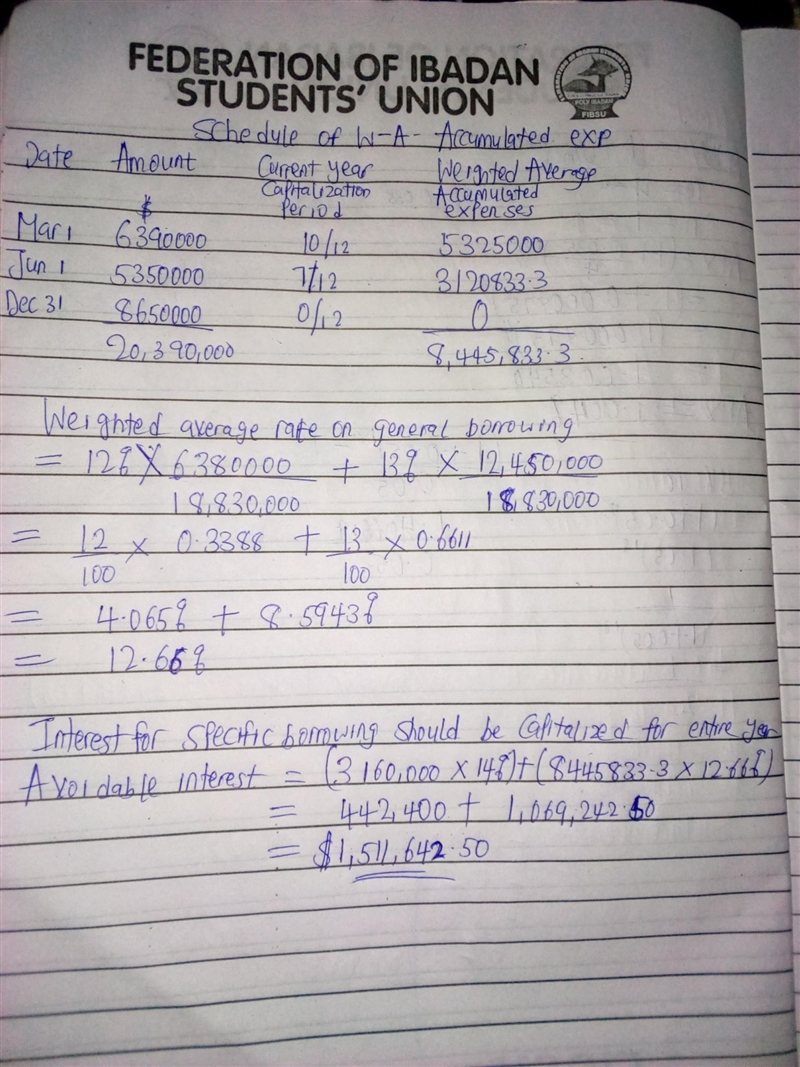 FEDERATION OF IBADAN
STUDENTS' UNION
HOLY IBADAN
FIBSU
Schedule of W-A- Accumulated exp
Date Amount Current year Weighted Average
Capitalization Accumulated
$ Period expenses
Mar 1 6390000 10/12 5325000
Jun 1 5350000 7/12 3120833.3
Dec 31 8650000 0/12 0
20,390,000 8,445,833.3
Weighted average rate on general borrowing
= 12% X 6380000 + 13% X 12,450,000
18,830,000 18,830,000
= 12 x 0.3388 + 13 x 0.6611
100 100
= 4.065% + 8.5943%
= 12.66%
Interest for Specific borrowing should be Capitalized for entire year
Avoidable interest = (3160,000 X 14%) + (8445833.3 X 12.66%)
= 442,400 + 1,069,242.50
= $1,511,642.50